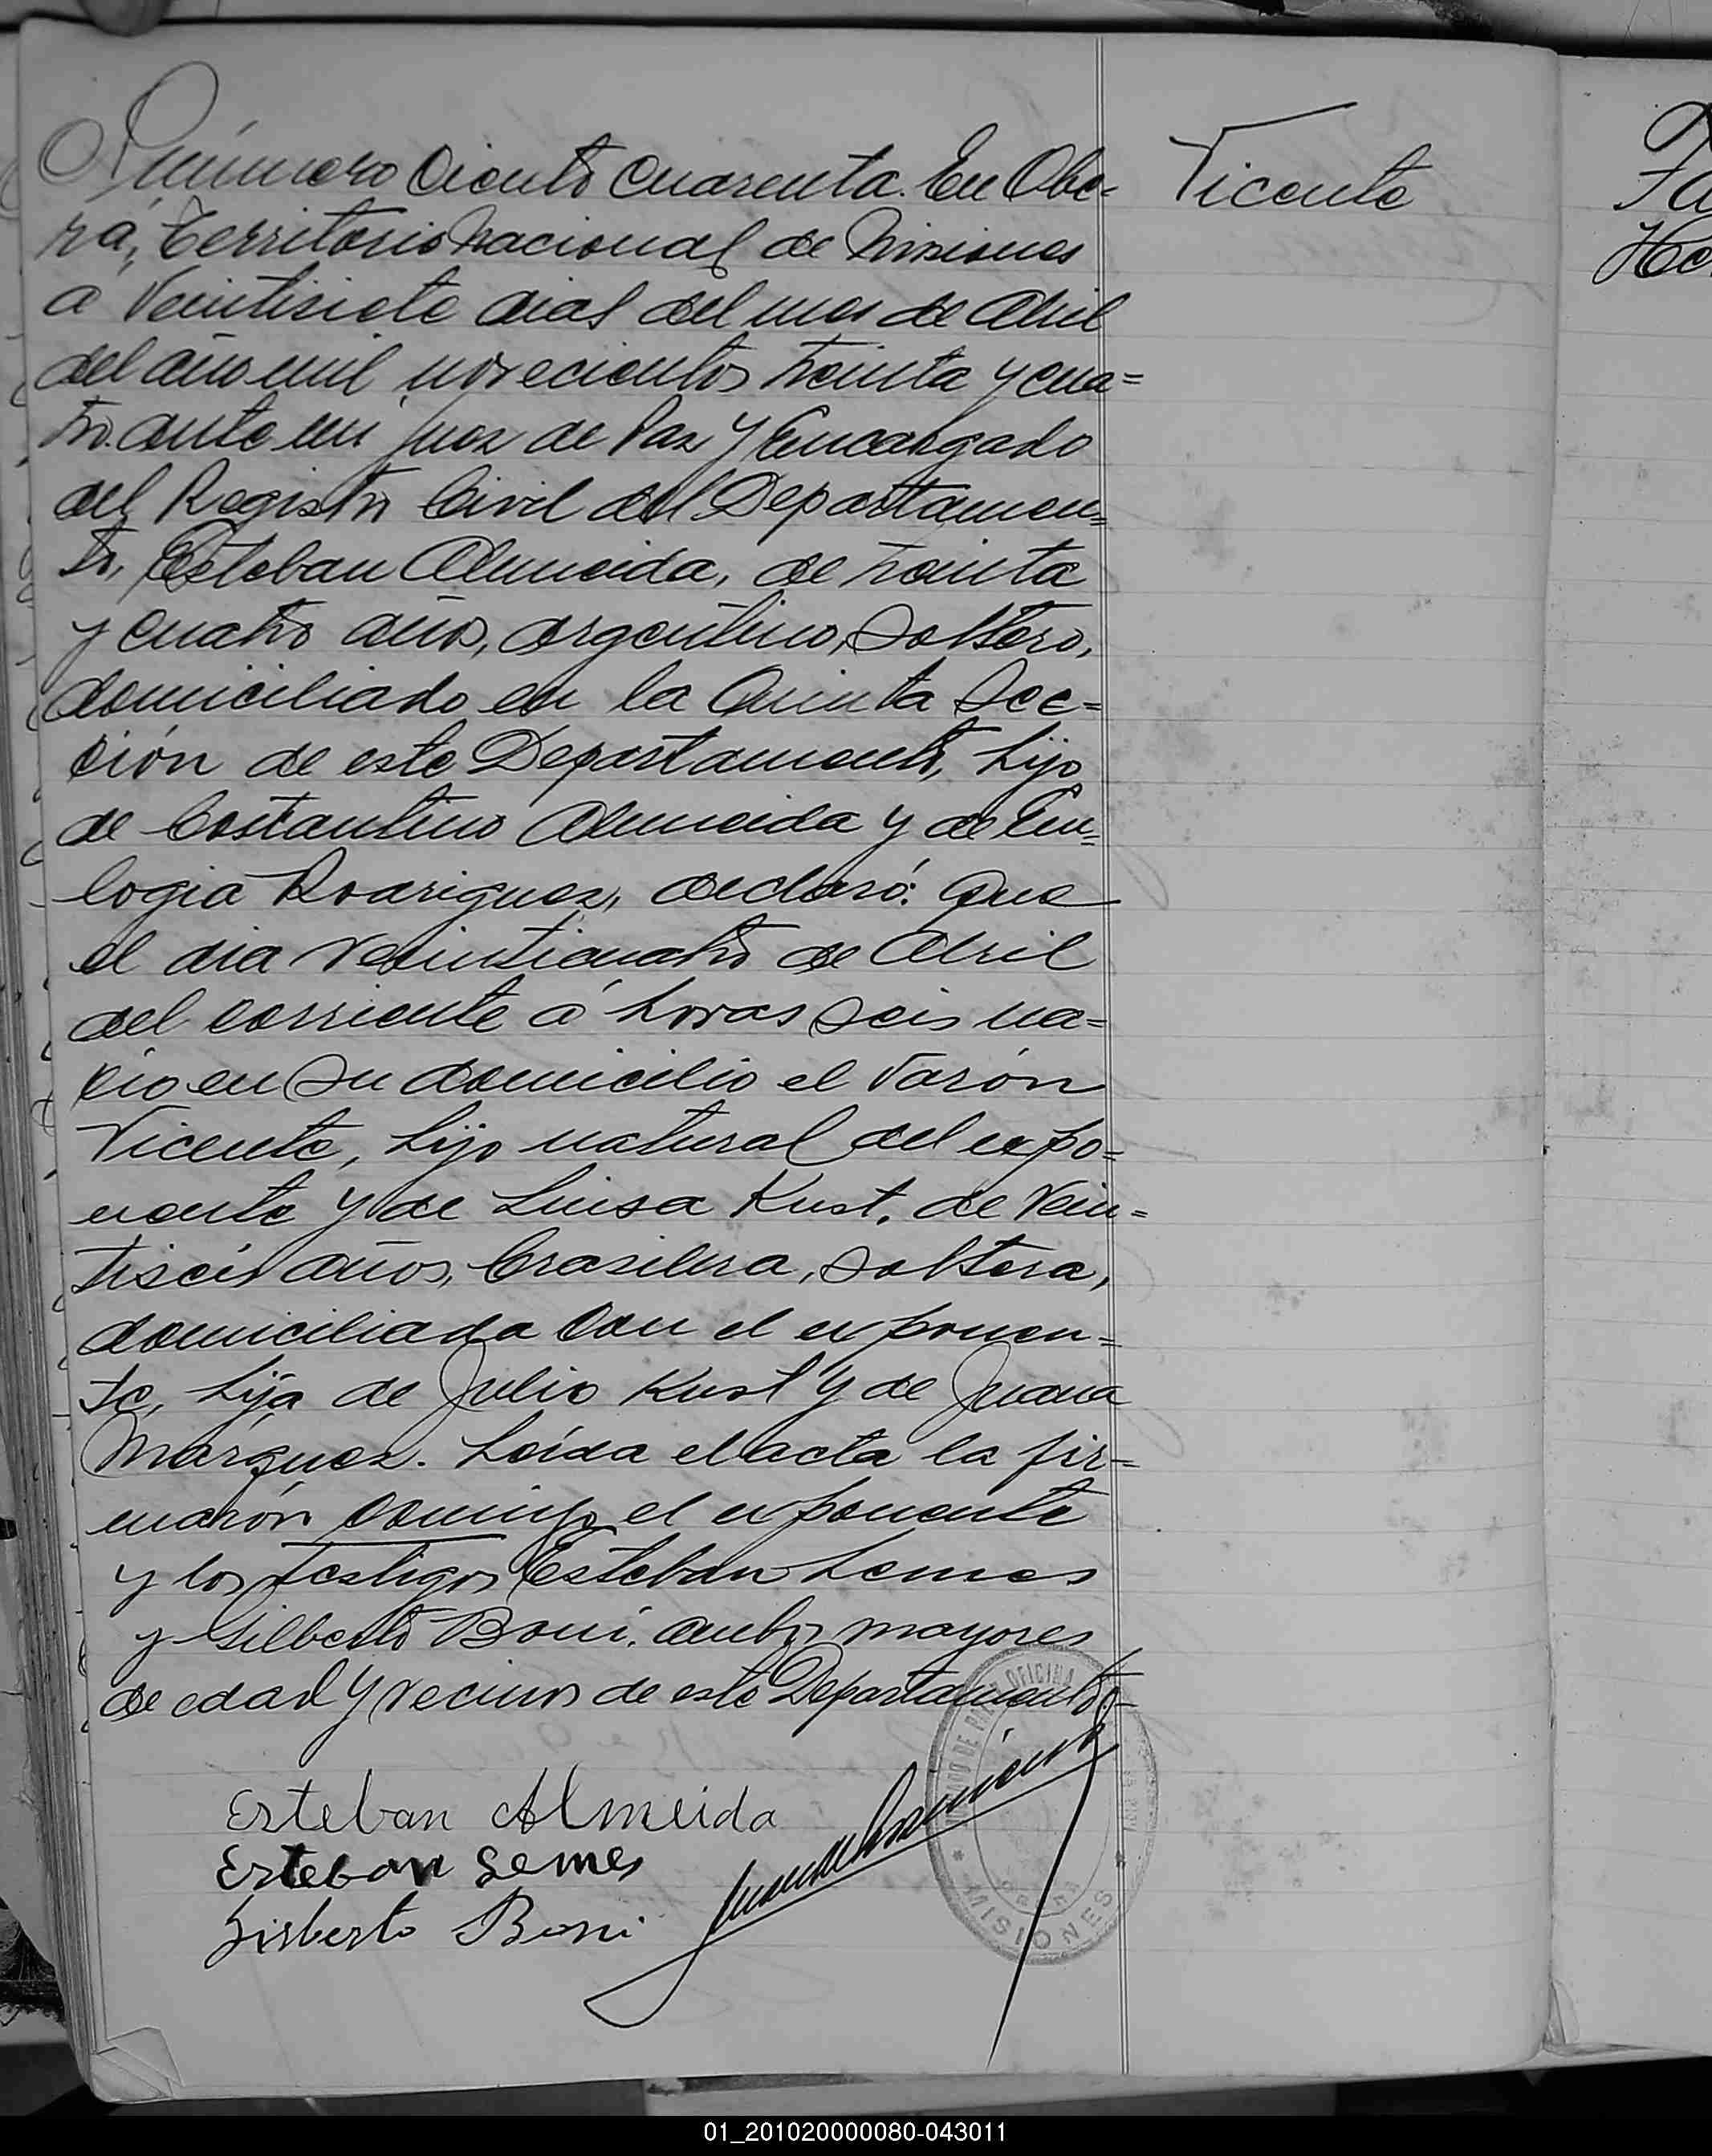 Número Ciento Cuarenta. En Obe=
rá, Territorio Nacional de Misiones
a Veintisiete dias del mes de Abril
del año mil novecientos treinta y cua=
tro. ante mi juez de Paz y Encargado
del Registro Civil del Departamen=
to, Esteban Almeida, de treinta
y cuatro años, argentino, Soltero,
domiciliado en la Quinta Sec=
ción de este Departamento, hijo
de Costantino Almeida y de Eu=
logia Rodriguez, declaró: Que
el dia veinticuatro de Abril
del corriente á horas seis na=
cio en su domicilio el Varón
Vicente, hijo natural del expo=
nente y de Luisa Kust. de Vein=
tiseis años, brasilera, soltera,
domiciliada con el exponen=
te, hija de Julio Kust y de Juana
Márquez. Leída el acta la fir=
marón conmigo el exponente
y los testigos Esteban Lemes
y Gilberto Boni. ambos mayores
de edad y vecinos de este Departamento-
Esteban Almeida
Esteban Lemes
Gisberto Boni
Vicente
Fa
He
JUZGADO DE PAZ OFICINA
MISIONES
01_201020000080-043011